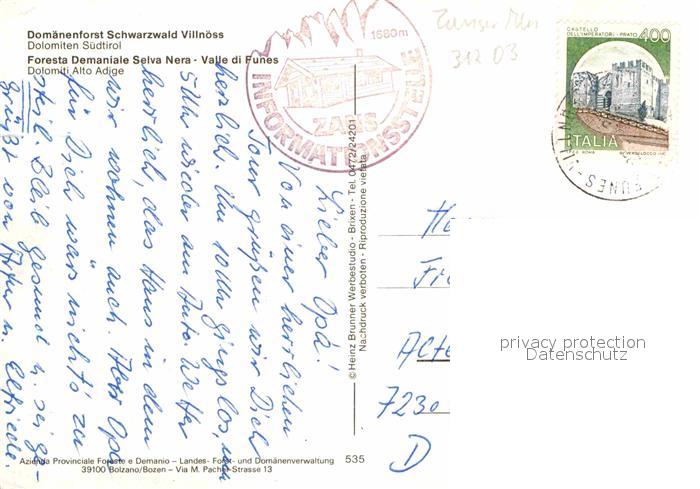 Domänenforst Schwarzwald Villnöss
Dolomiten Südtirol
Foresta Demaniale Selva Nera - Valle di Funes
Dolomiti Alto Adige
1680m
ZANS
INFORMATIONSSTELLE
312 03
CASTELLO
DELL'IMPERATORE - PRATO
400
ITALIA
FUNES - VILLN
Lieber Opa!
Von einer herrlichen
Tour grüßen wir Dich
herzlich. Um 10 Uhr gings los, um
5 Uhr wieder am Auto. Wetter
herrlich, das Haus in dem
wir wohnen auch. Aber Opa
für Dich wärs nichts zu
steil. Bleib gesund u. sei ge-
grüßt von Artur u. Elfriede.
© Heinz Brunner Werbestudio - Brixen - Tel. 0472/24201
Nachdruck verboten - Riproduzione vietata
He
Fr
Acte
7230
D
privacy protection
Datenschutz
Azienda Provinciale Foreste e Demanio – Landes- Forst- und Domänenverwaltung
39100 Bolzano/Bozen – Via M. Pacher-Strasse 13
535